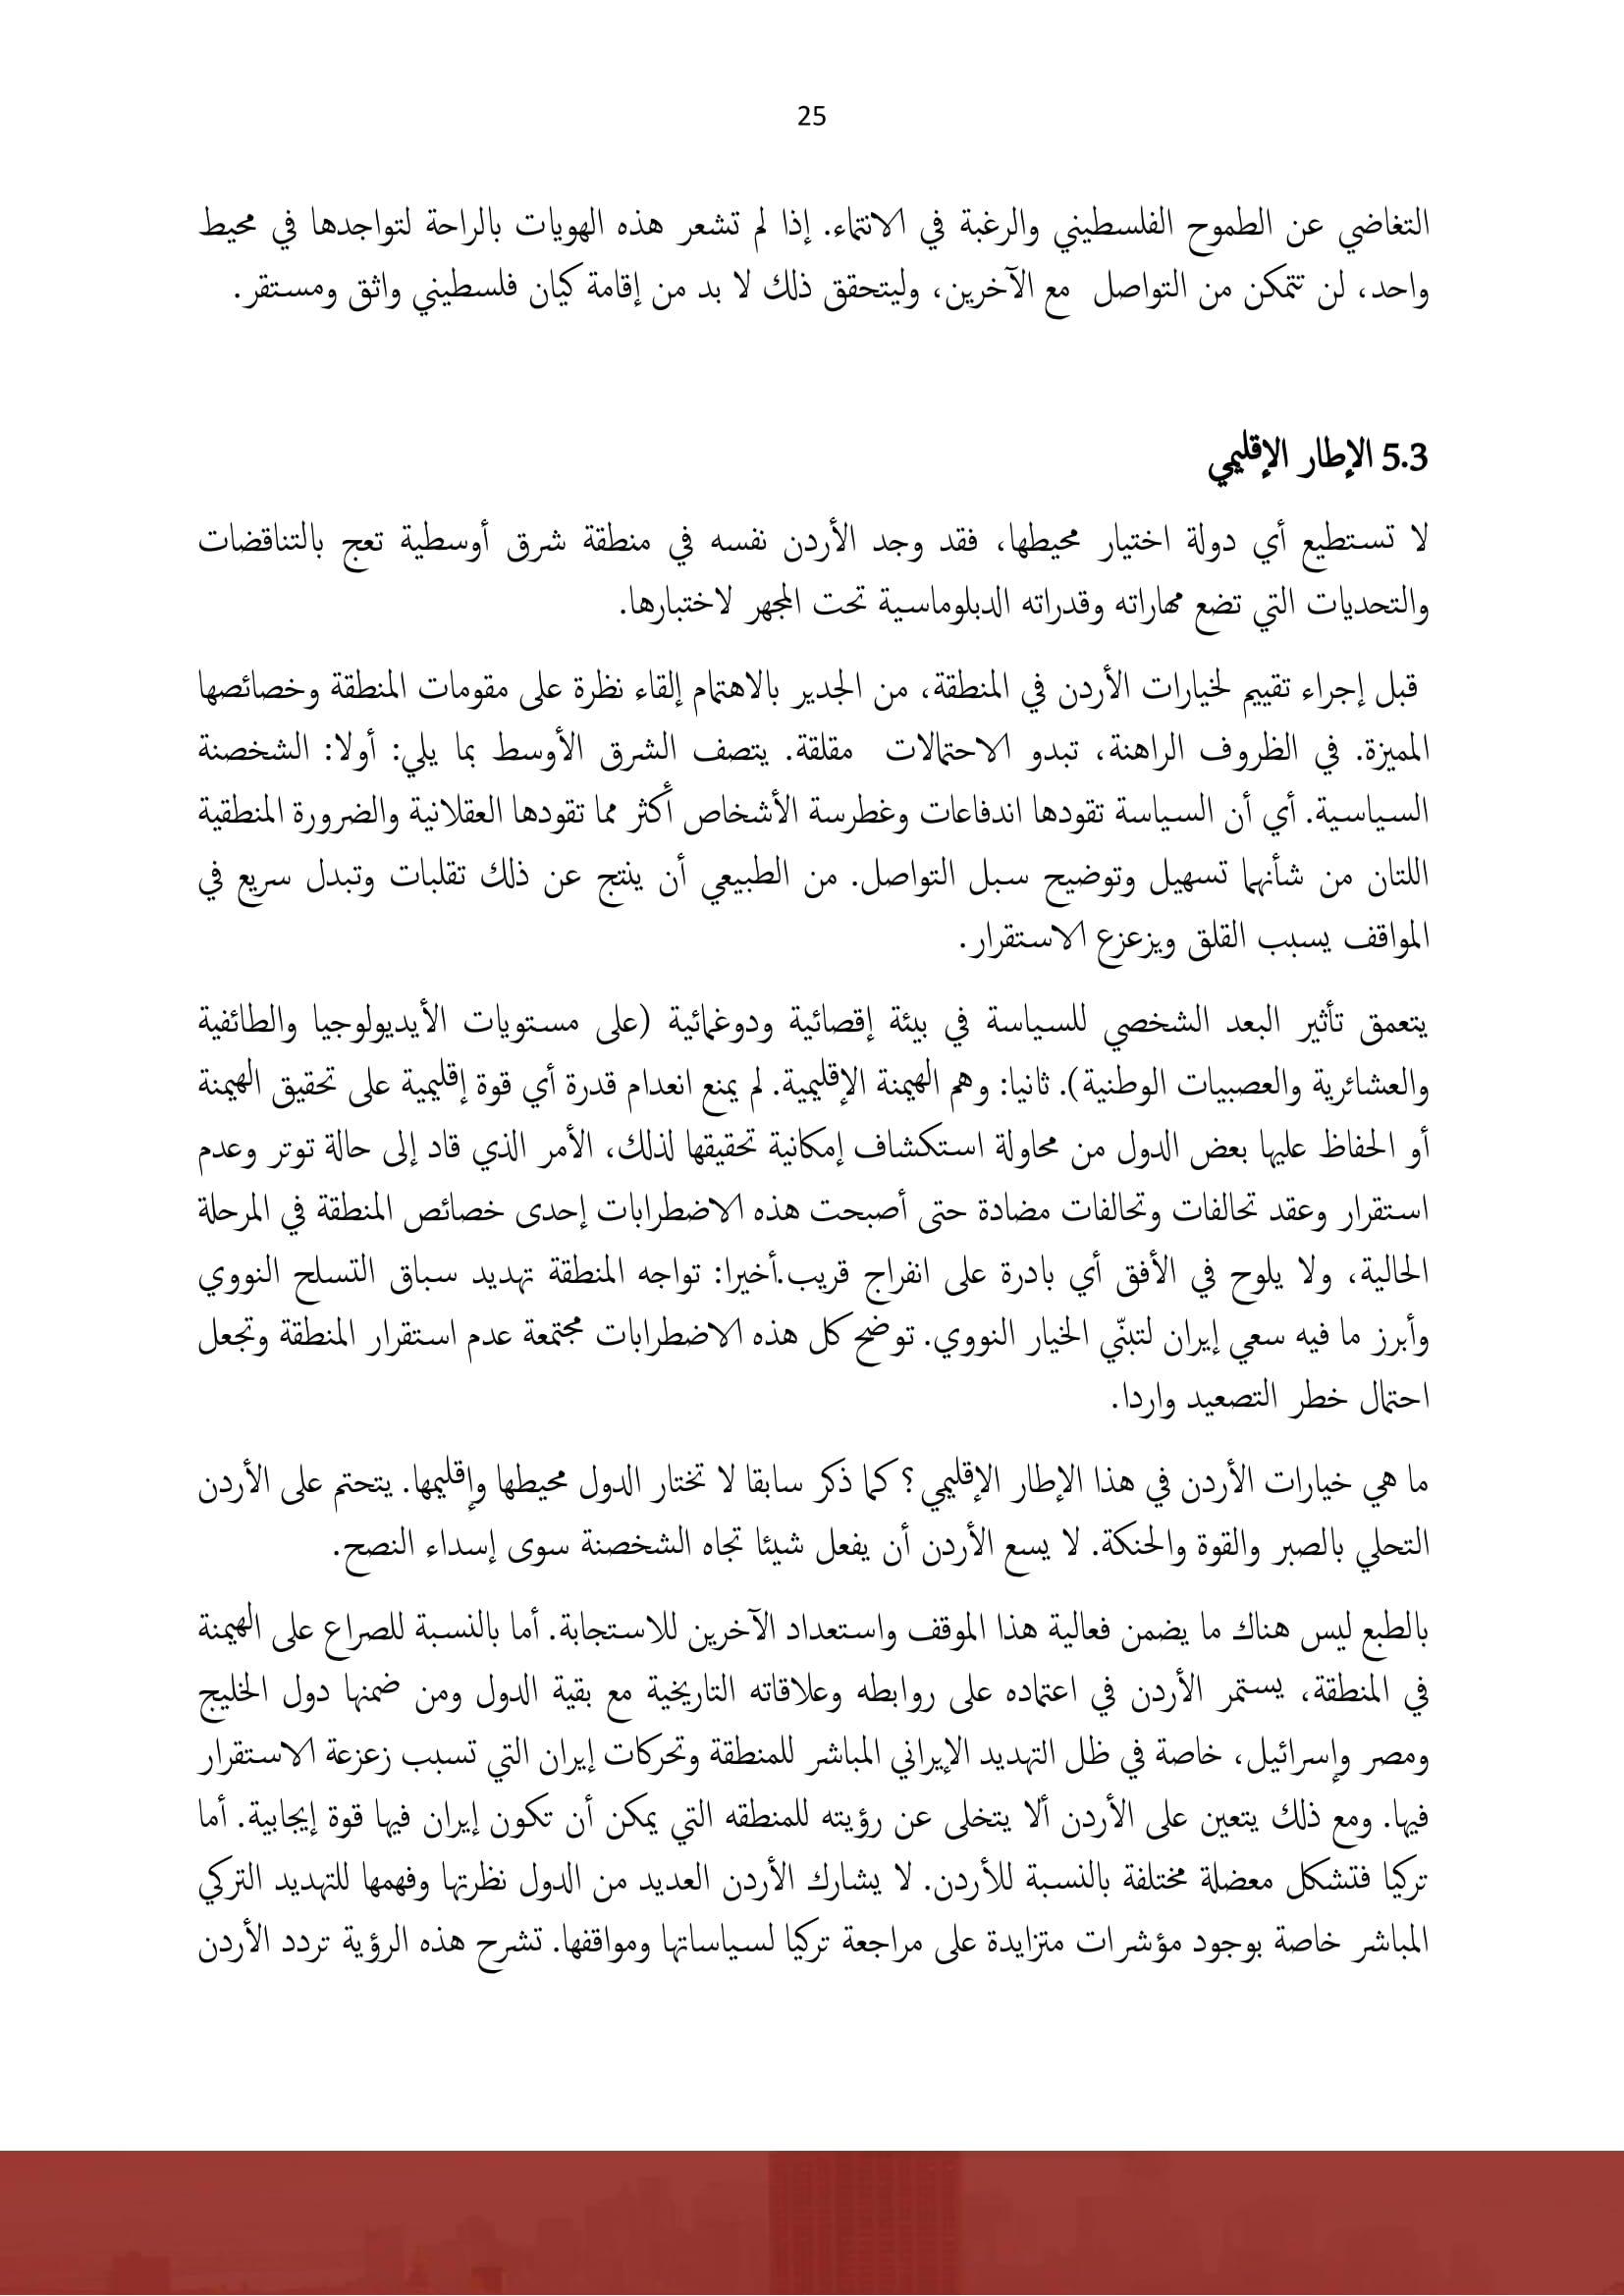 25
التغاضي عن الطموح الفلسطيني والرغبة في الانتماء. إذا لم تشعر هذه الهويات بالراحة لتواجدها في محيط
واحد، لن تتمكن من التواصل مع الآخرين، وليتحقق ذلك لا بد من إقامة كيان فلسطيني واثق ومستقر.
5.3 الإطار الإقليمي
لا تستطيع أي دولة اختيار محيطها، فقد وجد الأردن نفسه في منطقة شرق أوسطية تعج بالتناقضات
والتحديات التي تضع مهاراته وقدراته الدبلوماسية تحت المجهر لاختبارها.
قبل إجراء تقييم لخيارات الأردن في المنطقة، من الجدير بالاهتمام إلقاء نظرة على مقومات المنطقة وخصائصها
المميزة. في الظروف الراهنة، تبدو الاحتمالات مقلقة. يتصف الشرق الأوسط بما يلي: أولا: الشخصنة
السياسية. أي أن السياسة تقودها اندفاعات وغطرسة الأشخاص أكثر مما تقودها العقلانية والضرورة المنطقية
اللتان من شأنهما تسهيل وتوضيح سبل التواصل. من الطبيعي أن ينتج عن ذلك تقلبات وتبدل سريع في
المواقف يسبب القلق ويزعزع الاستقرار.
يتعمق تأثير البعد الشخصي للسياسة في بيئة إقصائية ودوغمائية (على مستويات الأيديولوجيا والطائفية
والعشائرية والعصبيات الوطنية). ثانيا: وهم الهيمنة الإقليمية. لم يمنع انعدام قدرة أي قوة إقليمية على تحقيق الهيمنة
أو الحفاظ عليها بعض الدول من محاولة استكشاف إمكانية تحقيقها لذلك، الأمر الذي قاد إلى حالة توتر وعدم
استقرار وعقد تحالفات وتحالفات مضادة حتى أصبحت هذه الاضطرابات إحدى خصائص المنطقة في المرحلة
الحالية، ولا يلوح في الأفق أي بادرة على انفراج قريب.أخيرا: تواجه المنطقة تهديد سباق التسلح النووي
وأبرز ما فيه سعي إيران لتبنّي الخيار النووي. توضح كل هذه الاضطرابات مجتمعة عدم استقرار المنطقة وتجعل
احتمال خطر التصعيد واردا.
ما هي خيارات الأردن في هذا الإطار الإقليمي؟ كما ذكر سابقا لا تختار الدول محيطها وإقليمها. يتحتم على الأردن
التحلي بالصبر والقوة والحنكة. لا يسع الأردن أن يفعل شيئا تجاه الشخصنة سوى إسداء النصح.
بالطبع ليس هناك ما يضمن فعالية هذا الموقف واستعداد الآخرين للاستجابة. أما بالنسبة للصراع على الهيمنة
في المنطقة، يستمر الأردن في اعتماده على روابطه وعلاقاته التاريخية مع بقية الدول ومن ضمنها دول الخليج
ومصر وإسرائيل، خاصة في ظل التهديد الإيراني المباشر للمنطقة وتحركات إيران التي تسبب زعزعة الاستقرار
فيها. ومع ذلك يتعين على الأردن ألا يتخلى عن رؤيته للمنطقه التي يمكن أن تكون إيران فيها قوة إيجابية. أما
تركيا فتشكل معضلة مختلفة بالنسبة للأردن. لا يشارك الأردن العديد من الدول نظرتها وفهمها للتهديد التركي
المباشر خاصة بوجود مؤشرات متزايدة على مراجعة تركيا لسياساتها ومواقفها. تشرح هذه الرؤية تردد الأردن